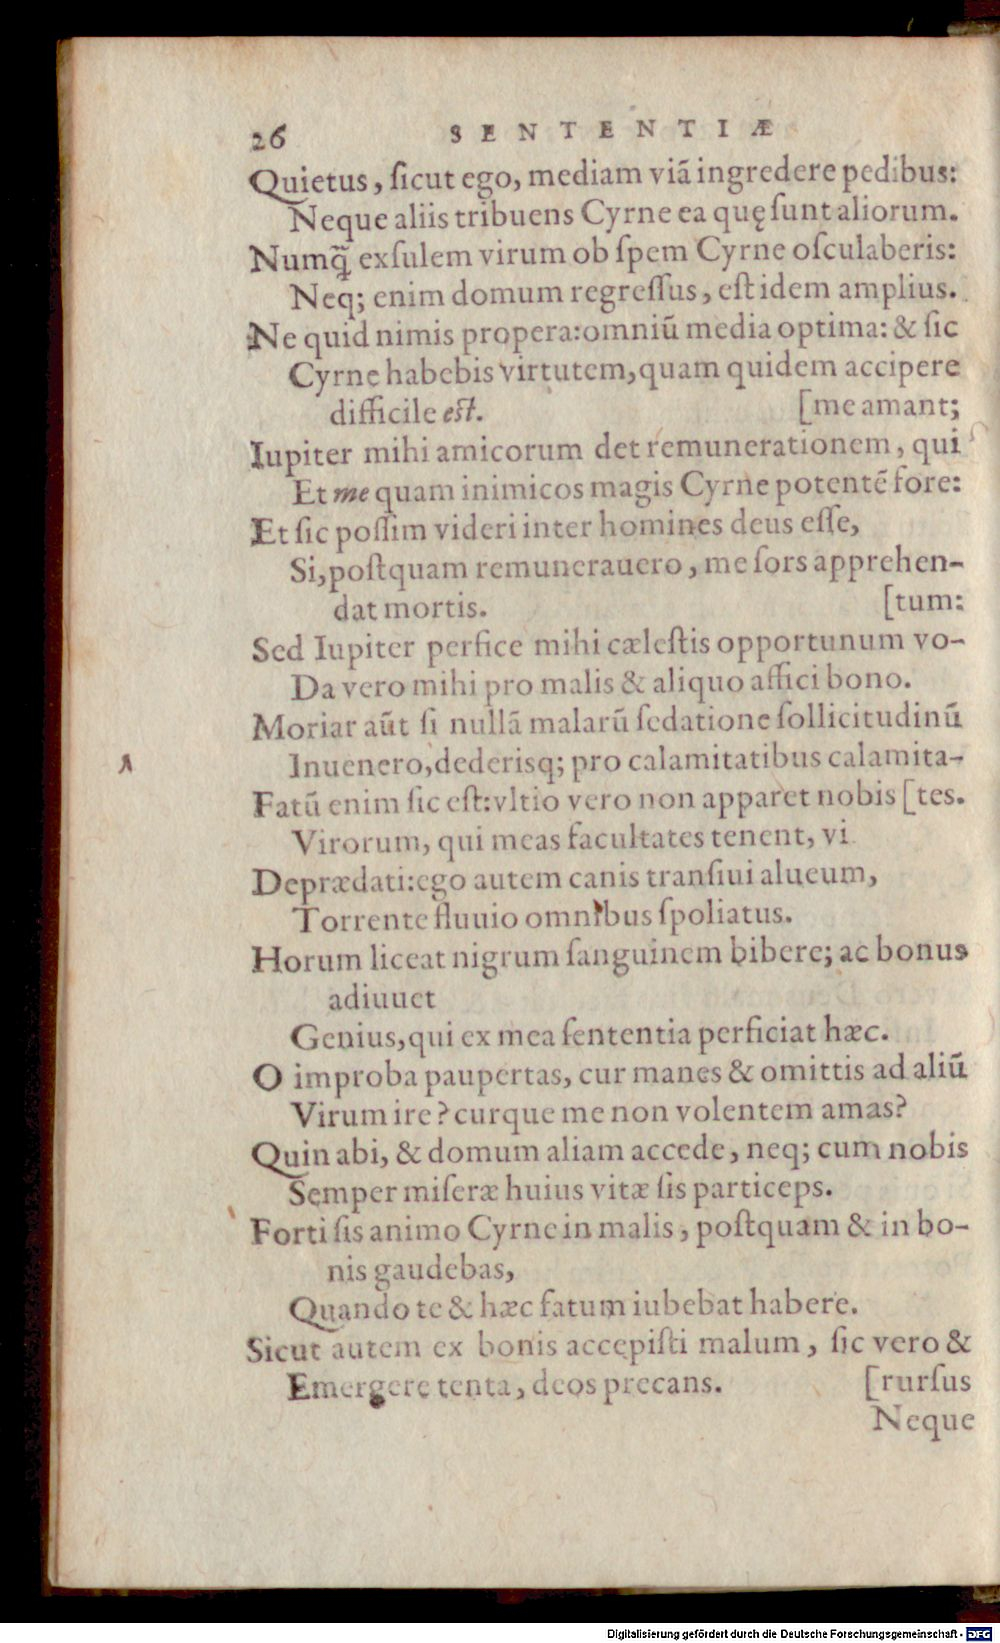 26 SENTENTIÆ
Quietus, ſicut ego, mediam viã ingredere pedibus:
Neque aliis tribuens Cyrne ea quę ſunt aliorum.
Numq̃ exſulem virum ob ſpem Cyrne oſculaberis:
Neq; enim domum regreſſus, eſt idem amplius.
Ne quid nimis propera:omniũ media optima: & ſic
Cyrne habebis virtutem,quam quidem accipere
difficile eſt. [me amant;
Iupiter mihi amicorum det remunerationem, qui
Et me quam inimicos magis Cyrne potentẽ fore:
Et ſic poſſim videri inter homines deus eſſe,
Si,poſtquam remunerauero, me ſors apprehen-
dat mortis. [tum:
Sed Iupiter perfice mihi cæleſtis opportunum vo-
Da vero mihi pro malis & aliquo affici bono.
Moriar aũt ſi nullã malarũ ſedatione ſollicitudinũ
Inuenero,dederisq; pro calamitatibus calamita-
Fatũ enim ſic eſt:vltio vero non apparet nobis [tes.
Virorum, qui meas facultates tenent, vi
Deprædati:ego autem canis tranſiui alueum,
Torrente fluuio omnibus ſpoliatus.
Horum liceat nigrum ſanguinem bibere; ac bonus
adiuuet
Genius,qui ex mea ſententia perficiat hæc.
O improba paupertas, cur manes & omittis ad aliũ
Virum ire? curque me non volentem amas?
Quin abi, & domum aliam accede, neq; cum nobis
Semper miſeræ huius vitæ ſis particeps.
Forti ſis animo Cyrne in malis, poſtquam & in bo-
nis gaudebas,
Quando te & hæc fatum iubebat habere.
Sicut autem ex bonis accepiſti malum, ſic vero &
Emergere tenta, deos precans. [rurſus
Neque
Digitalisierung gefördert durch die Deutsche Forschungsgemeinschaft - DFG